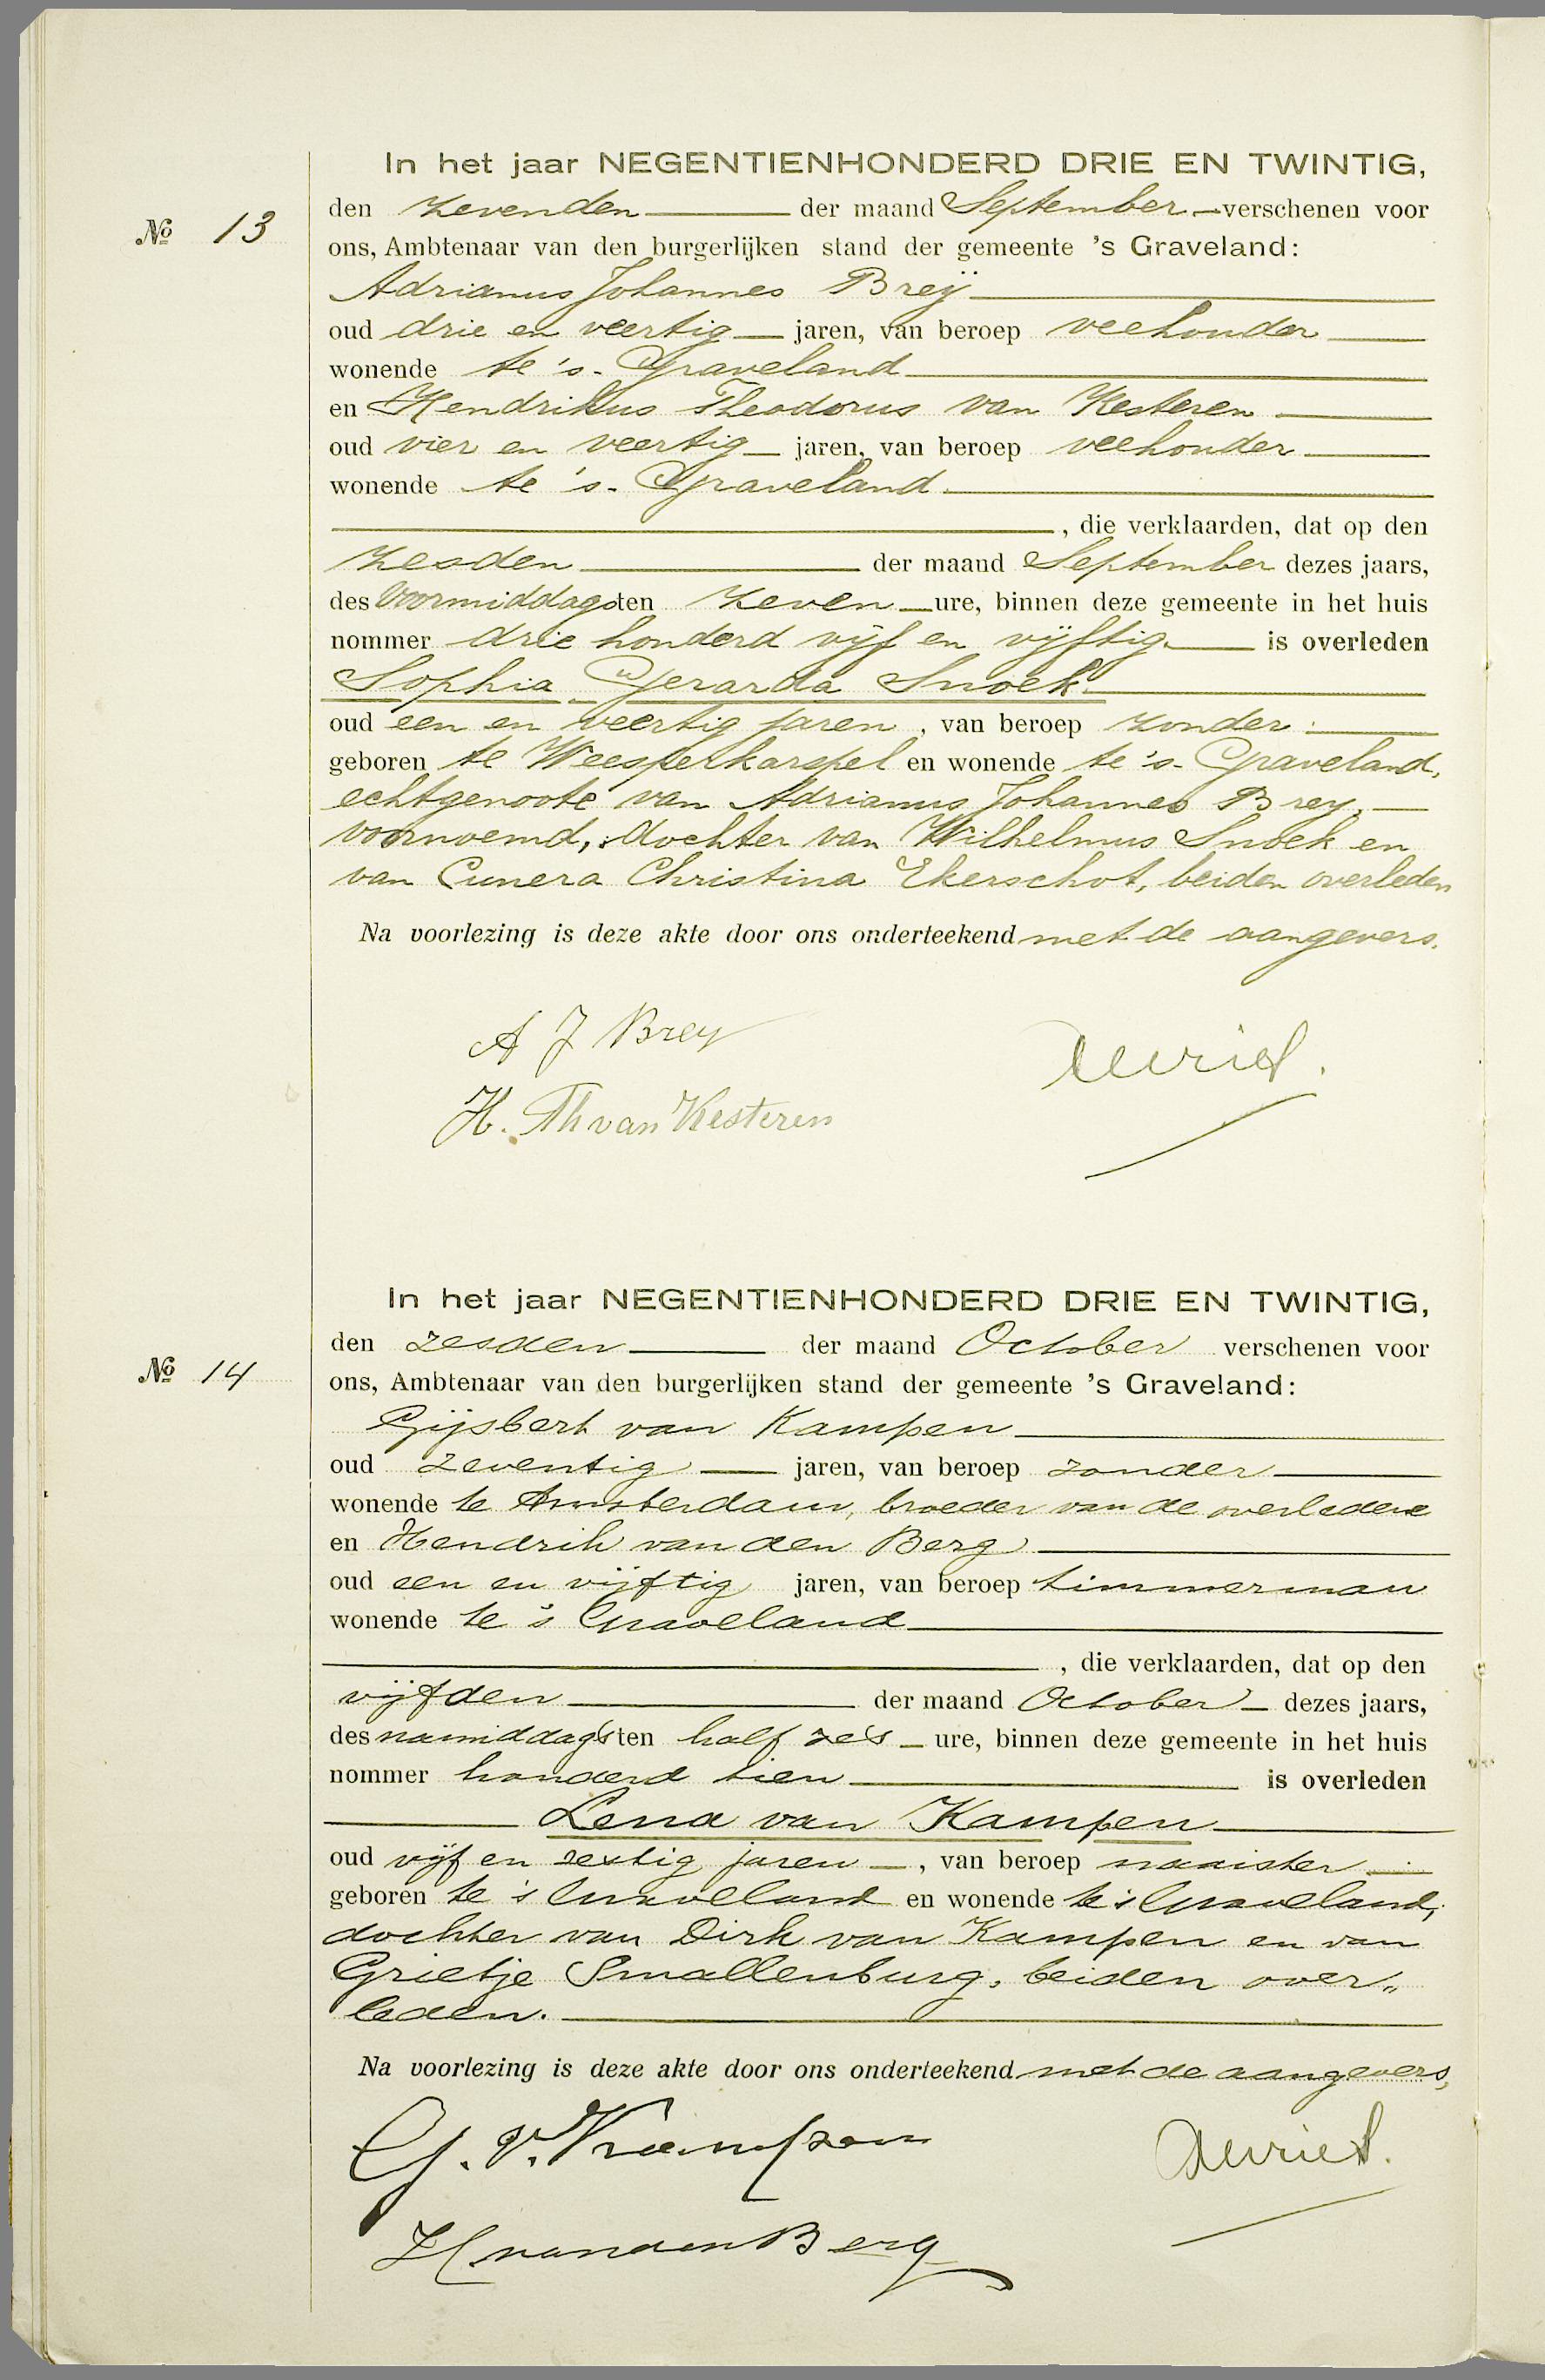 In het jaar NEGENTIENHONDERD DRIE EN TWINTIG,
den zevenden der maand September verschenen voor
No 13
ons, Ambtenaar van den burgerlijken stand der gemeente 's Graveland:
Adrianus Johannes Breÿ
oud drie en veertig jaren, van beroep veehouder
wonende te 's-Graveland
en Hendrikus Theodorus van Kesteren
oud vier en veertig jaren, van beroep veehouder
wonende te 's-Graveland
, die verklaarden, dat op den
zesden der maand September dezes jaars,
des voormiddags ten zeven ure, binnen deze gemeente in het huis
nommer drie honderd vijf en vijftig is overleden
Sophia Gerarda Snoek
oud een en veertig jaren, van beroep zonder
geboren te Weesperkarspel en wonende te 's-Graveland,
echtgenoote van Adrianus Johannes Brey,
voornoemd, dochter van Wilhelmus Snoek en
van Cunera Christina Ekerschot, beiden overleden
Na voorlezing is deze akte door ons onderteekend met de aangevers.
A J Brey
H. Th van Kesteren
In het jaar NEGENTIENHONDERD DRIE EN TWINTIG,
den zesden der maand October verschenen voor
No 14
ons, Ambtenaar van den burgerlijken stand der gemeente 's Graveland:
Gijsbert van Kampen
oud zeventig jaren, van beroep zonder
wonende te Amsterdam, broeder van de overledene
en Hendrik van den Berg
oud een en vijftig jaren, van beroep timmerman
wonende te 's Graveland
, die verklaarden, dat op den
vijfden der maand October dezes jaars,
des namiddags ten half zes ure, binnen deze gemeente in het huis
nommer honderd tien is overleden
Lena van Kampen
oud vijf en zestig jaren, van beroep naaister
geboren te 's Graveland en wonende te 's Graveland,
dochter van Dirk van Kampen en van
Grietje Smallenburg, beiden over„
leden.
Na voorlezing is deze akte door ons onderteekend met de aangevers,
G. v. Kampen
H van den Berg